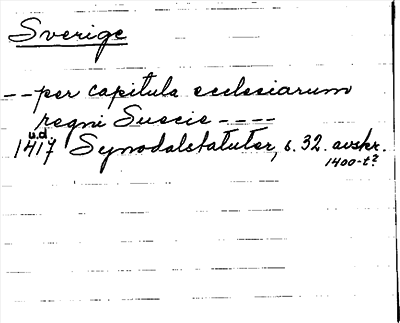 Sverige
-- per capitula ecclesiarum
regni Suecie ----
u.d.
1417 Synodalstatuter, s. 32. avskr.
1400-t²